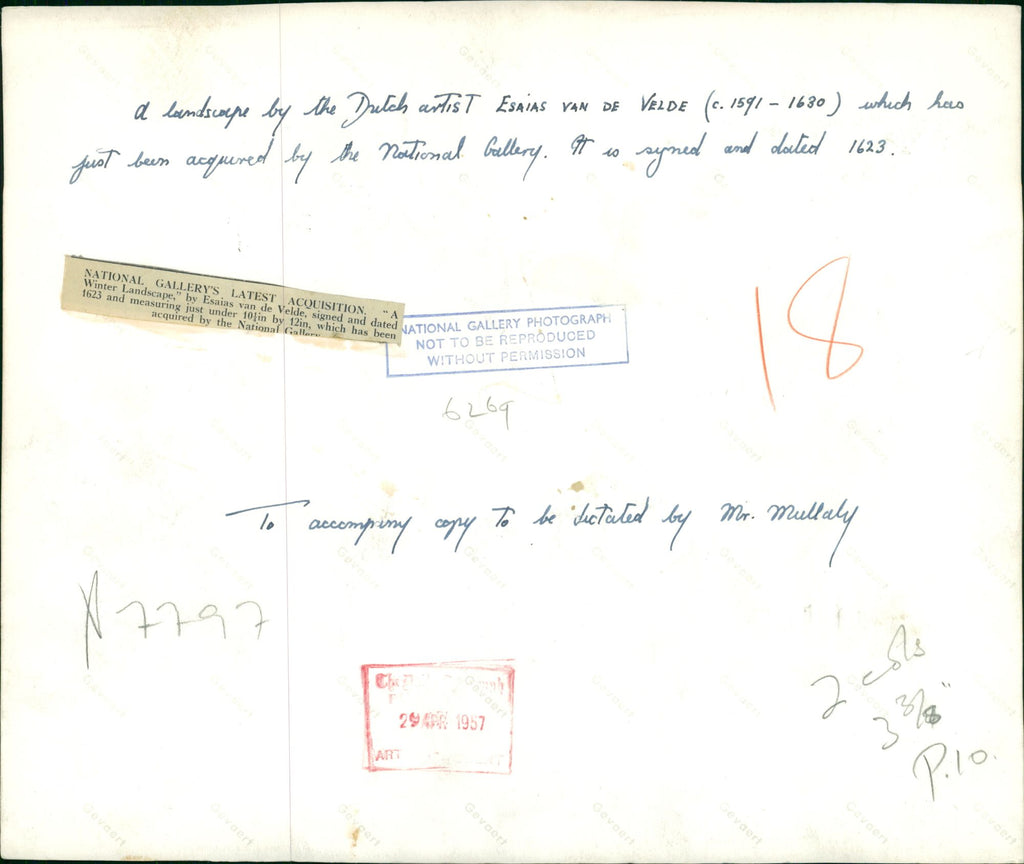 A landscape by the Dutch artist ESAIAS VAN DE VELDE (c. 1591 - 1630) which has
just been acquired by the National Gallery. It is signed and dated 1623.
NATIONAL GALLERY'S LATEST ACQUISITION. "A
Winter Landscape," by Esaias van de Velde, signed and dated
1623 and measuring just under 10¼in by 12in, which has been
acquired by the National Gallery
NATIONAL GALLERY PHOTOGRAPH
NOT TO BE REPRODUCED
WITHOUT PERMISSION
18
6269
To accompany copy to be dictated by Mr. Mullaly
N7797
29 APR 1957
ART
2 cols
3 3/8"
P.10.
Gevaert